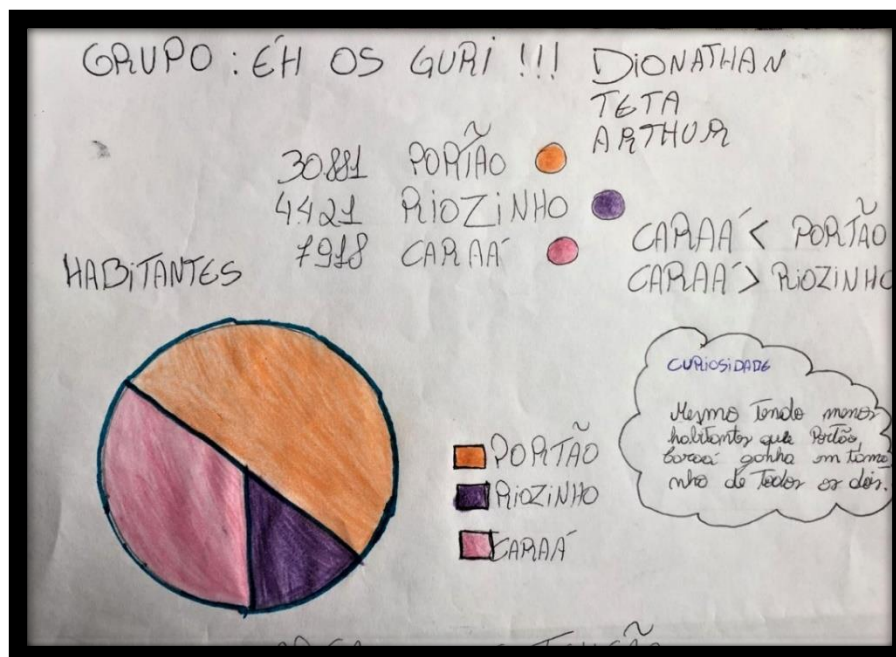 GRUPO : ÉH OS GURI !!! DIONATHAN
TETA
ARTHUR
30881 PORTÃO
4421 RIOZINHO
7918 CARAÁ
CARAÁ < PORTÃO
CARAÁ > RIOZINHO
HABITANTES
CURIOSIDADE
Mesmo Tendo menos
habitantes que Portão,
Caraá ganha em tama
nho de Todos os dois.
PORTÃO
RIOZINHO
CARAÁ